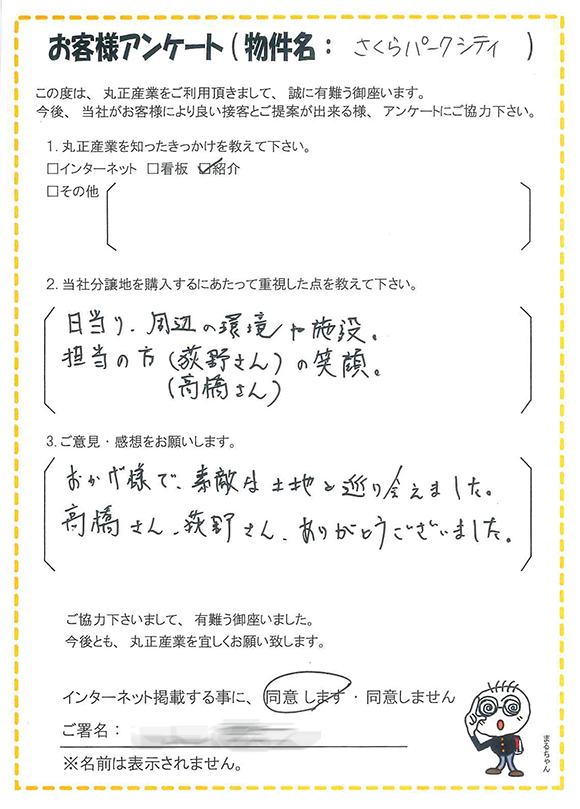 お客様アンケート(物件名：さくらパークシティ)
この度は、丸正産業をご利用頂きまして、誠に有難う御座います。
今後、当社がお客様により良い接客とご提案が出来る様、アンケートにご協力下さい。
1.丸正産業を知ったきっかけを教えて下さい。
□インターネット □看板 ☑紹介
□その他
2.当社分譲地を購入するにあたって重視した点を教えて下さい。
日当り、周辺の環境や施設。
担当の方(荻野さん)の笑顔。
(高橋さん)
3.ご意見・感想をお願いします。
おかげ様で、素敵な土地と巡り会えました。
高橋さん、荻野さん、ありがとうございました。
ご協力下さいまして、有難う御座いました。
今後とも、丸正産業を宜しくお願い致します。
インターネット掲載する事に、同意します・同意しません
ご署名：
※名前は表示されません。
まるちゃん